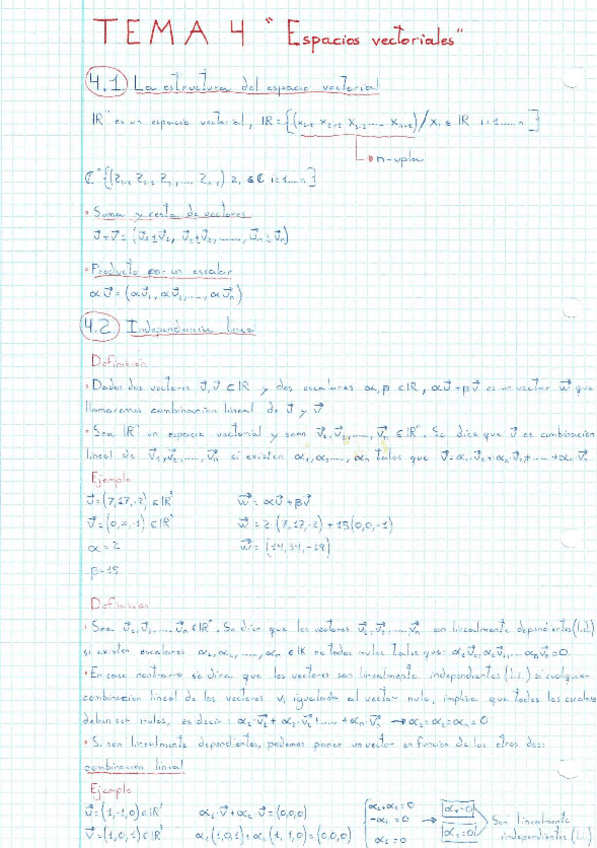 TEMA 4 "Espacios vectoriales"
4.1 La estructura del espacio vectorial
ℝⁿ es un espacio vectorial, ℝ = {(x₁, x₂, x₃, ..... xₙ) / xᵢ ∈ ℝ i=1.....n}
n-upla
ℂⁿ {(z₁, z₂, z₃, .... zₙ) zᵢ ∈ ℂ i=1....n}
• Suma y resta de vectores
• Producto por un escalar
αu⃗ = (αu⃗₁, αu⃗₂, ...., αu⃗ₙ)
4.2 Independencia lineal
Definición
• Dados dos vectores u⃗, v⃗ ∈ ℝ y dos escalares α, β ∈ ℝ, αu⃗+βv⃗ es un vector w⃗ que
llamaremos combinación lineal de u⃗ y v⃗
• Sea ℝⁿ un espacio vectorial y sean v⃗₁, v⃗₂, ...., v⃗ₙ ∈ ℝⁿ. Se dice que u⃗ es combinación
lineal de v⃗₁, v⃗₂, ...., v⃗ₙ si existen α₁, α₂, ...., αₙ tales que u⃗ = α₁v⃗₁ + α₂v⃗₂ + .... + αₙv⃗ₙ
Ejemplo
u⃗ = (7,17,-2) ∈ ℝ³ w⃗ = αu⃗ + βv⃗
v⃗ = (0,0,-1) ∈ ℝ³ w⃗ = 2 (7,17,-2) + 15(0,0,-1)
α = 2 w⃗ = (14,34,-19)
β = 15
Definición
• Sean v⃗₁, v⃗₂, .... v⃗ₙ ∈ ℝⁿ. Se dice que los vectores v⃗₁, v⃗₂, ...., v⃗ₙ son linealmente dependientes (l.d.)
si existen escalares α₁, α₂, ...., αₙ ∈ ℝ no todos nulos tales que: α₁v⃗₁, α₂v⃗₂, ... αₙv⃗ₙ = 0
• En caso contrario se dirá que los vectores son linealmente independientes (l.i.) si cualquier
combinación lineal de los vectores vᵢ igualada al vector nulo, implica que todos los escalares
deben ser nulos, es decir: α₁·v⃗₁ + α₂·v⃗₂ + .... + αₙ·v⃗ₙ → α₁=α₂=αₙ=0
• Si son linealmente dependientes, podemos poner un vector en función de los otros dos:
combinación lineal
Ejemplo
u⃗ = (1,-1,0) ∈ ℝ
v⃗ = (1,0,1) ∈ ℝ
Son linealmente
independientes (l.i.)